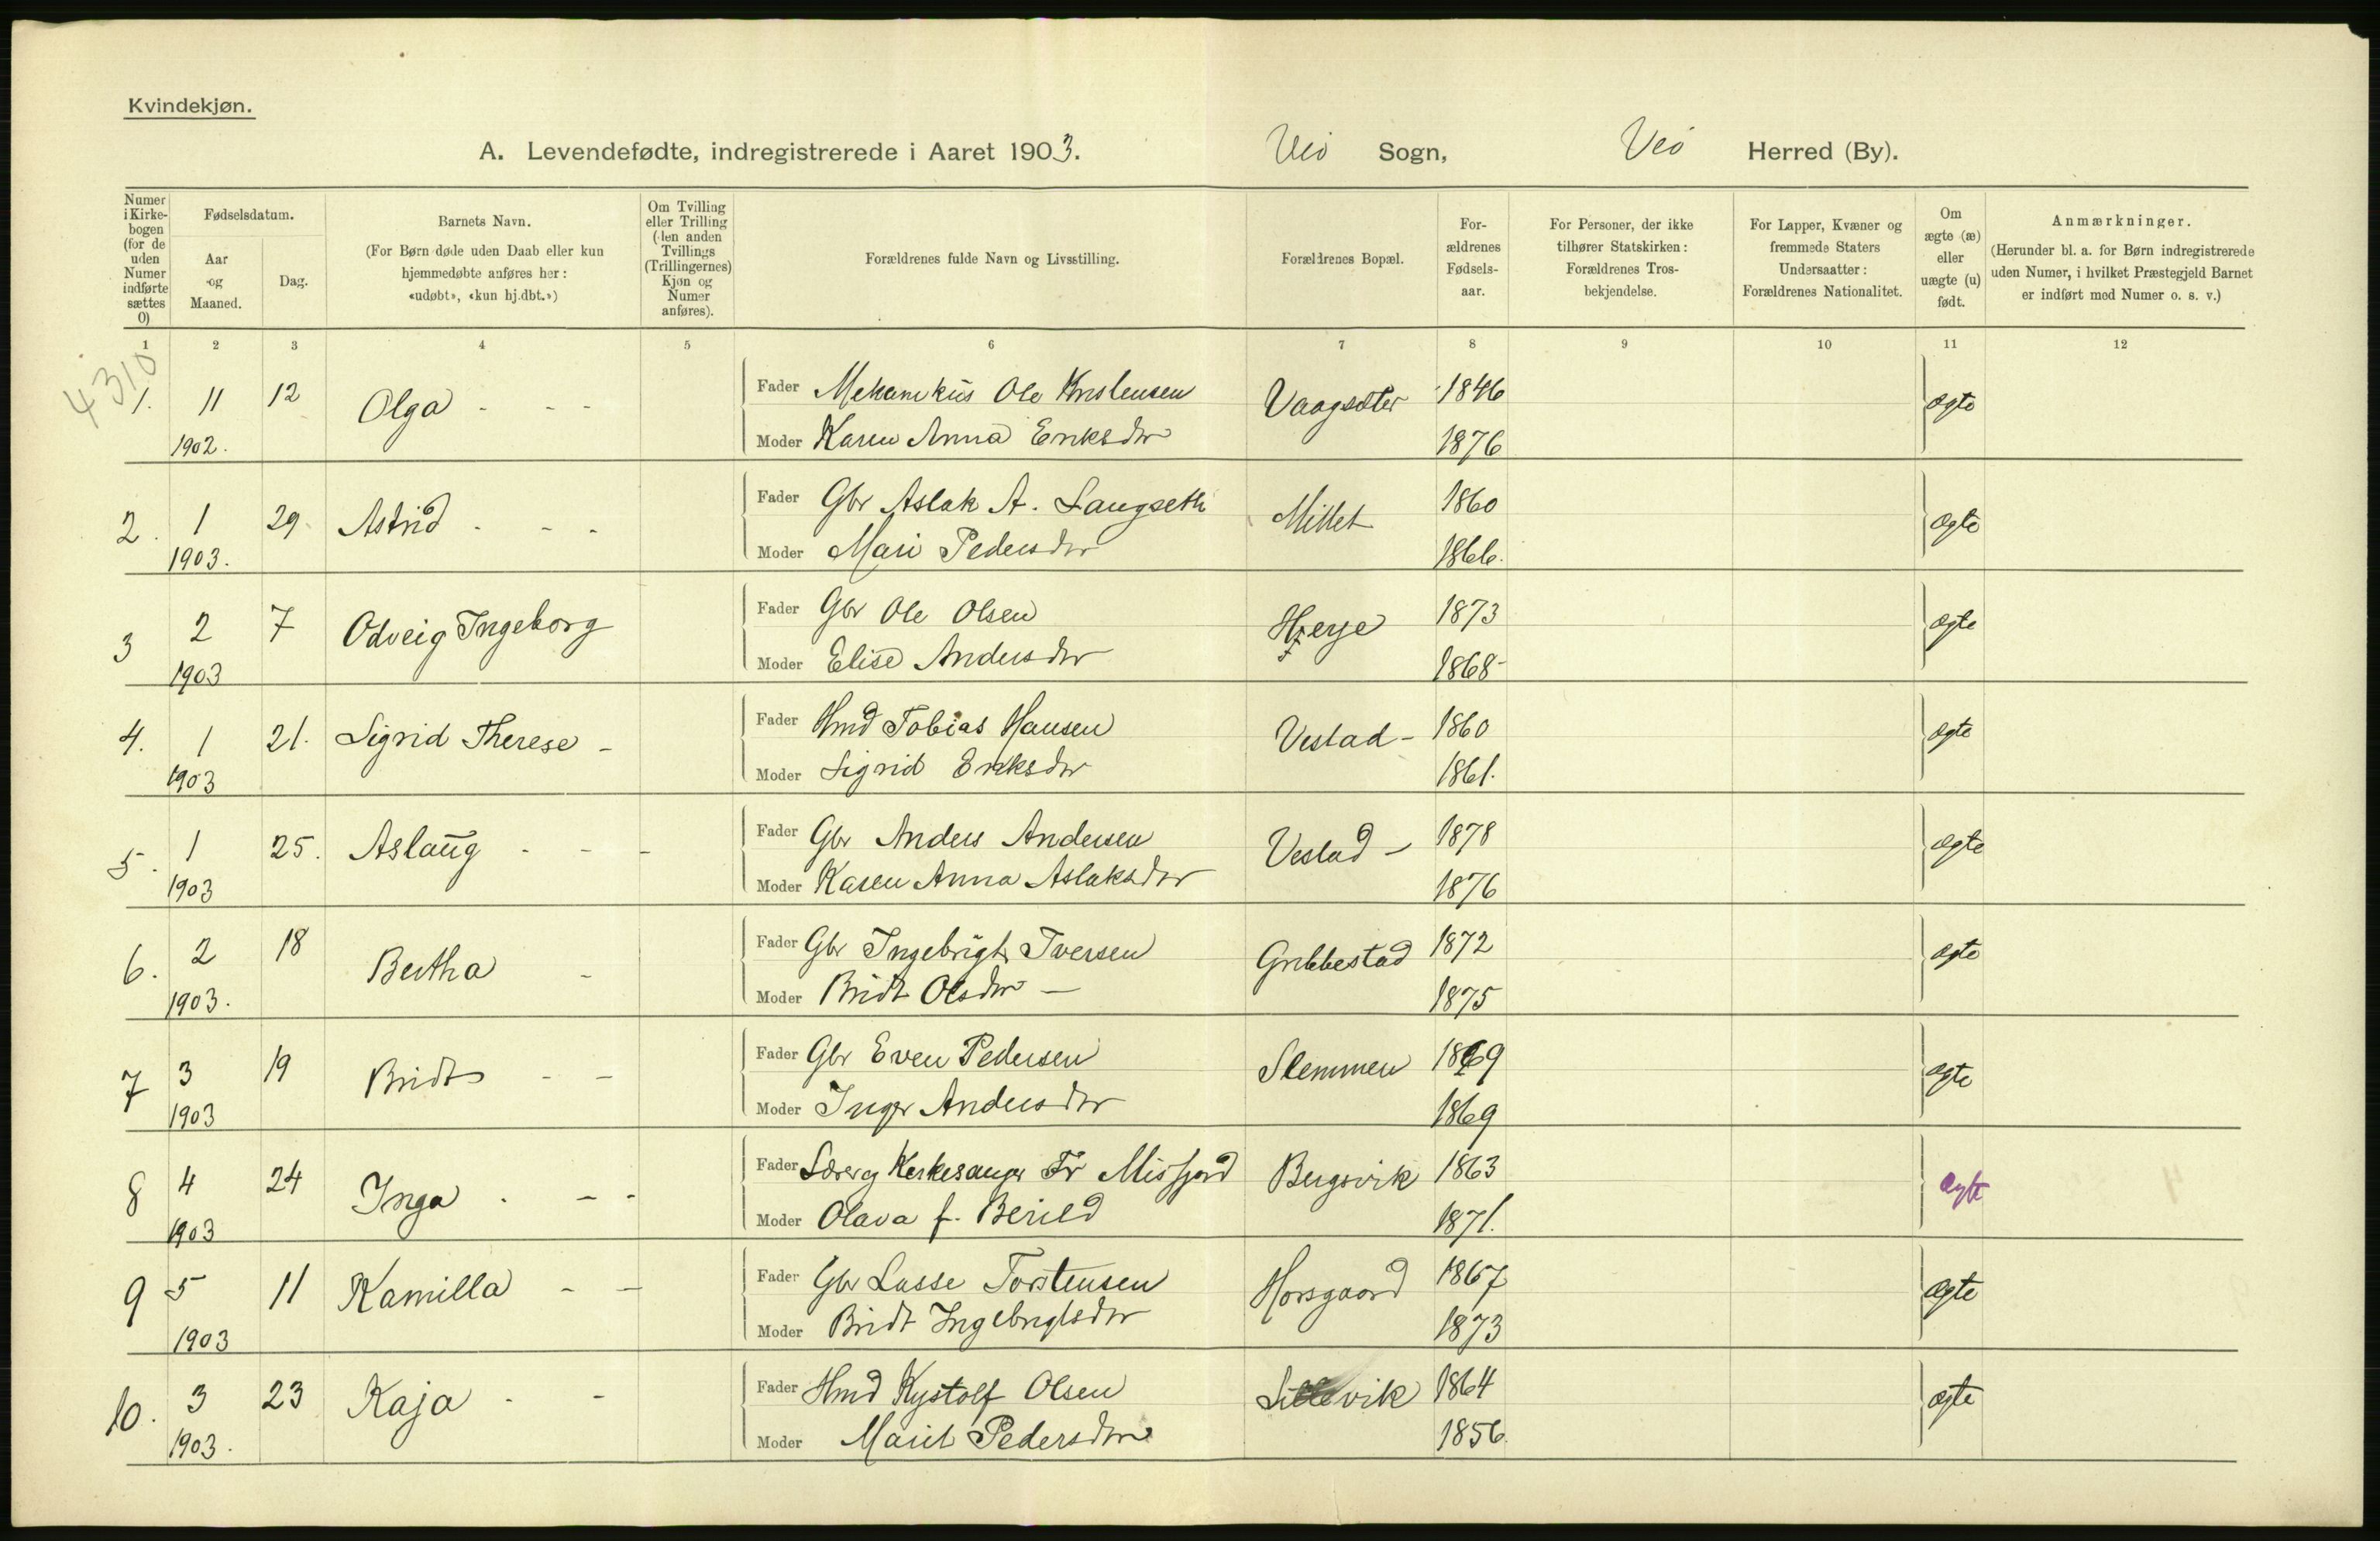 Kvindekjøn.
A. Levendefødte, indregistrerede i Aaret 1903. Veø Sogn, Veø Herred (By).
Numer i Kirkebogen (for de uden Numer indførte sættes 0)
Fødselsdatum.
Aar og Maaned.
Dag.
Barnets Navn.
(For Børn døde uden Daab eller kun hjemmedøbte anføres her: «udøbt», «kun hj.dbt.»)
Om Tvilling eller Trilling (den anden Tvillings (Trillingernes) Kjøn og Numer anføres).
Forældrenes fulde Navn og Livsstilling.
Forældrenes Bopæl.
For-ældrenes Fødsels-aar.
For Personer, der ikke tilhører Statskirken: Forældrenes Tros-bekjendelse.
For Lapper, Kvæner og fremmede Staters Undersaatter: Forældrenes Nationalitet.
Om ægte (æ) eller uægte (u) født.
Anmærkninger.
(Herunder bl. a. for Børn indregistrerede uden Numer, i hvilket Præstegjeld Barnet er indført med Numer o. s. v.)
1 2 3 4 5 6 7 8 9 10 11 12
4310
1. 11 12 Olga - - - Fader Mekanikus Ole Kristensen Vaagsæter 1846 ægte
1902. Moder Karen Anna Eriksdtr 1876
2. 1 29. Astrid - - - Fader Gbr Aslak A. Langseth Mittet 1860 ægte
1903. Moder Mari Pedersdtr 1866.
3 2 7 Odveig Ingeborg Fader Gbr Ole Olsen Hjerje 1873 ægte
1903 Moder Elise Andersdtr 1868-
4. 1 21. Sigrid Therese - Fader Hmd Tobias Hansen Vestad - 1860 ægte
1903 Moder Sigrid Eriksdtr 1861.
5. 1 25. Aslaug - - - Fader Gbr Anders Andersen Vestad - 1878 ægte
1903 Moder Karen Anna Aslaksdtr 1876
6. 2 18 Bertha - Fader Gbr Ingebrigt Iversen Gribbestad 1872 ægte
1903. Moder Bridt Olsdtr - 1875
7 3 19 Bridt - - Fader Gbr Even Pedersen Slemmen 1869 ægte
1903 Moder Inger Andersdtr 1869
8 4 24 Inga - - - Fader Lærer og Kirkesanger Fr Misfjord Bergsvik 1863 ægte
1903 Moder Olava f. Berild 1871.
9 5 11 Kamilla - - Fader Gbr Lasse Torstensen Horsgaard 1867 ægte
1903 Moder Bridt Ingebrigtsdtr 1873
10. 3 23 Kaja - - Fader Hmd Kystolf Olsen Lillevik 1864 ægte
1903. Moder Marit Pedersdtr 1856.